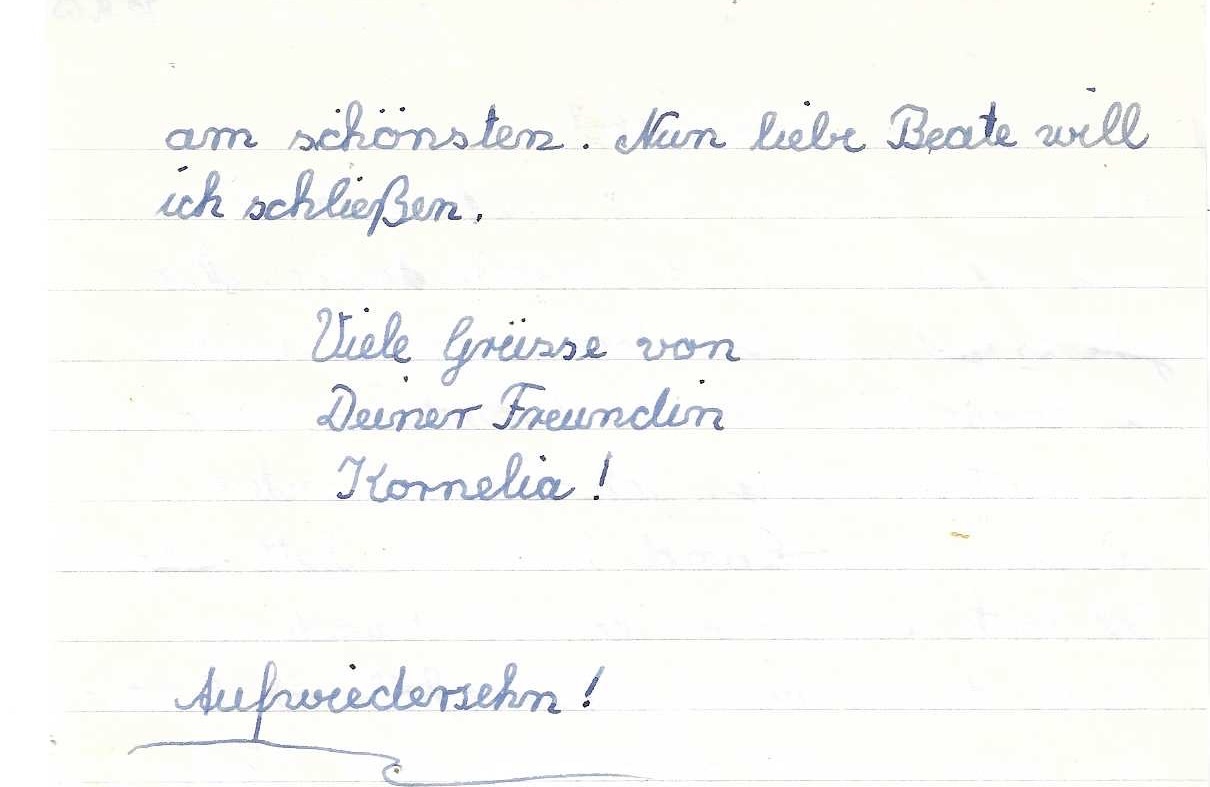 am schönsten. Nun liebe Beate will
ich schließen.
Viele Grüsse von
Deiner Freundin
Kornelia!
Aufwiedersehn!